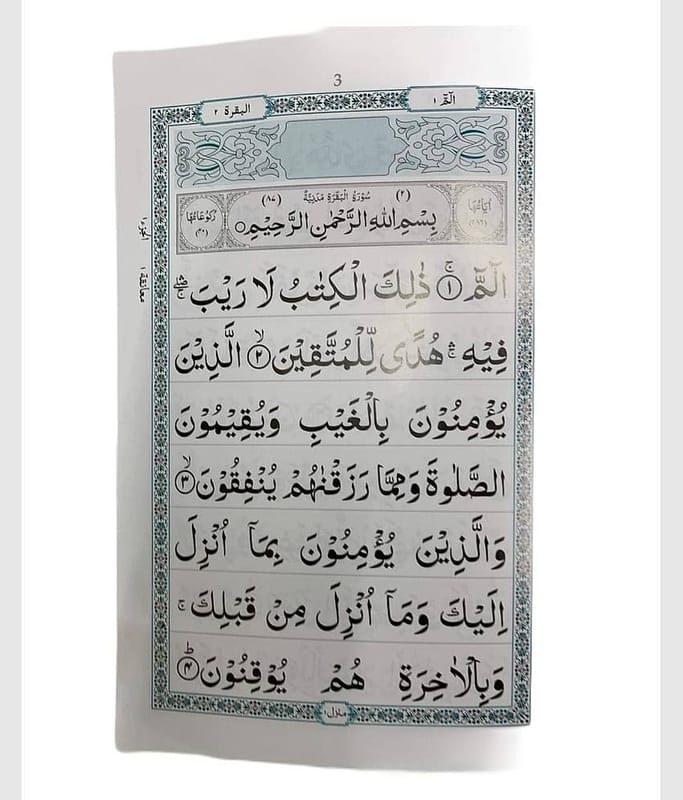 3
الٓمّٓ ١
البقرة ٢
(٢) سُوْرَةُ الْبَقَرَةِ مَدَنِيَّةٌ (٨٧)
اٰيَاتُهَا (٢٨٦)
بِسْمِ اللّٰهِ الرَّحْمٰنِ الرَّحِيْمِ
رُكُوْعَاتُهَا (٤٠)
الٓمّٓ ۚ﴿١﴾ ذٰلِكَ الْكِتٰبُ لَا رَيْبَ ۛۖۚ
فِيْهِ ۛۚ هُدًى لِّلْمُتَّقِيْنَ ۙ﴿٢﴾ الَّذِيْنَ
يُؤْمِنُوْنَ بِالْغَيْبِ وَيُقِيْمُوْنَ
الصَّلٰوةَ وَمِمَّا رَزَقْنٰهُمْ يُنْفِقُوْنَ ۙ﴿٣﴾
وَالَّذِيْنَ يُؤْمِنُوْنَ بِمَاۤ اُنْزِلَ
اِلَيْكَ وَمَاۤ اُنْزِلَ مِنْ قَبْلِكَ ۚ
وَبِالْاٰخِرَةِ هُمْ يُوْقِنُوْنَ ؕ﴿٤﴾
معانقة ١
منزل ١